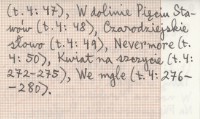 (t. 4: 47), W dolinie Pięciu Sta-
wów (t. 4: 48), Czarodziejskie
słowo (t. 4: 49), Nevermore (t.
4: 50), Kwiat na szczycie (t. 4:
272-275), We mgle (t. 4: 276-
-280).